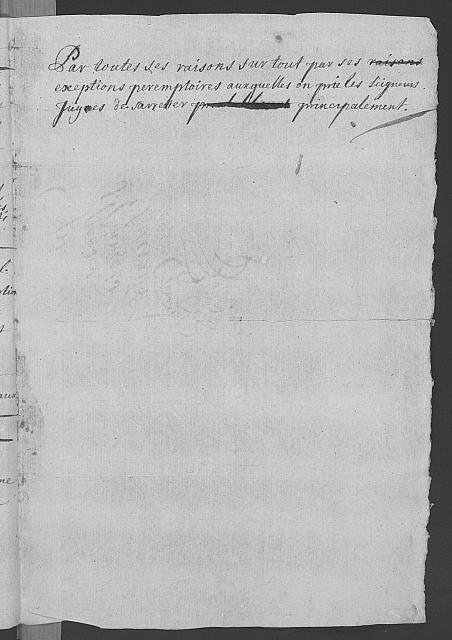 Par toutes ses raisons sur tout par ses raisons
exceptions peremptoires auxquelles on prie les Seigneurs.
Juges de sarreter principalement.